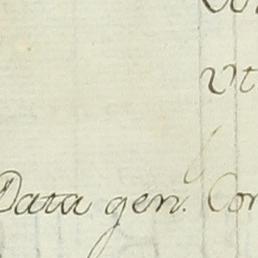 Vt
Data gen. Con